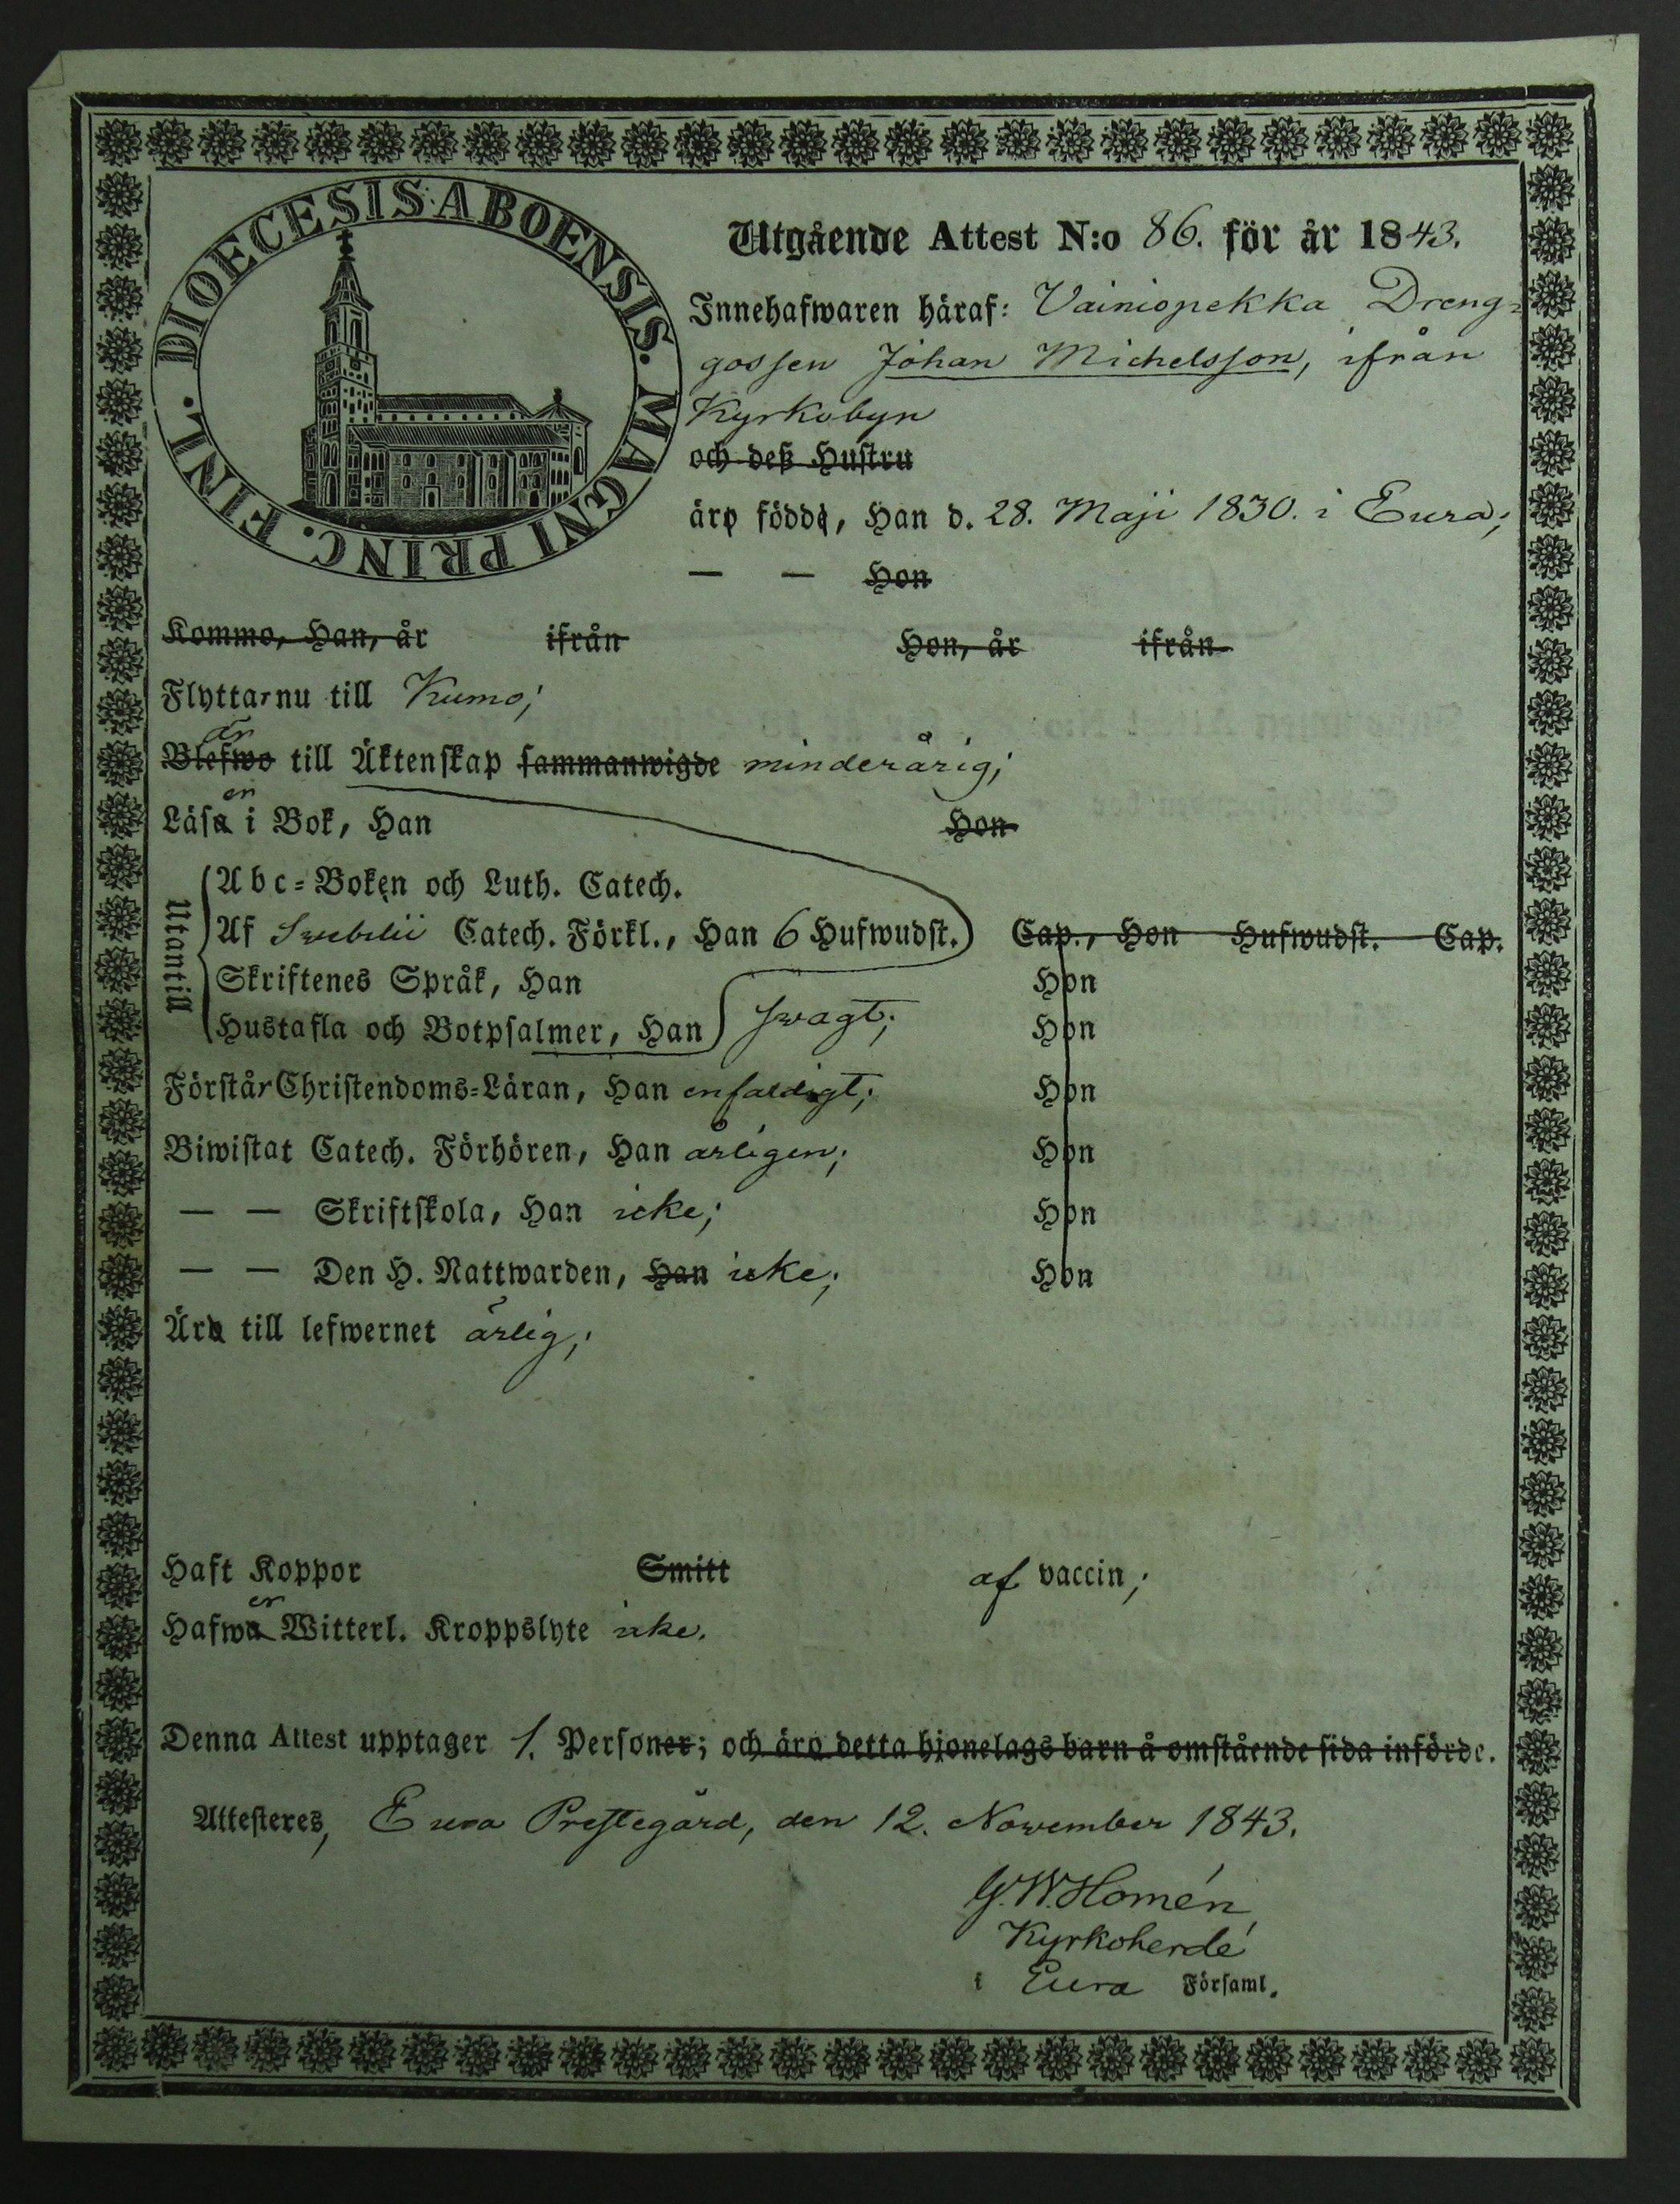 DIOECESIS ABOENSIS. MAGNI PRINC. FINL.
Utgående Attest N:o 86. för år 1843.
Innehafwaren häraf: Vainiopekka Dreng-
gossen Johan Michelsson, ifrån
Kyrkobyn
och deß Hustru
äro födde, Han d. 28. Maji 1830. i Eura;
— — Hon
Kommo, Han, år ifrån Hon, år ifrån
Flytta nu till Kumo;
är
Blefwo till Äktenskap sammanwigde minderårig;
er
Läsa i Bok, Han Hon
Utantill
Abc-Boken och Luth. Catech.
Af Swebelii Catech. Förkl., Han 6 Hufwudst. Cap., Hon Hufwudst. Cap.
Skriftenes Språk, Han Hon
Hustafla och Botpsalmer, Han swagt; Hon
Förstår Christendoms-Läran, Han enfaldigt; Hon
Biwistat Catech. Förhören, Han årligen; Hon
— — Skriftskola, Han icke; Hon
— — Den H. Nattwarden, Han icke; Hon
Äro till lefwernet ärlig;
Haft Koppor Smitt af vaccin;
er
Hafwa Witterl. Kroppslyte icke.
Denna Attest upptager 1. Personer; och äro detta hjonelags barn å omstående sida införde.
Attesteres, Eura Prestegård, den 12. November 1843.
G. W. Homén
Kyrkoherde
i Eura Församl.